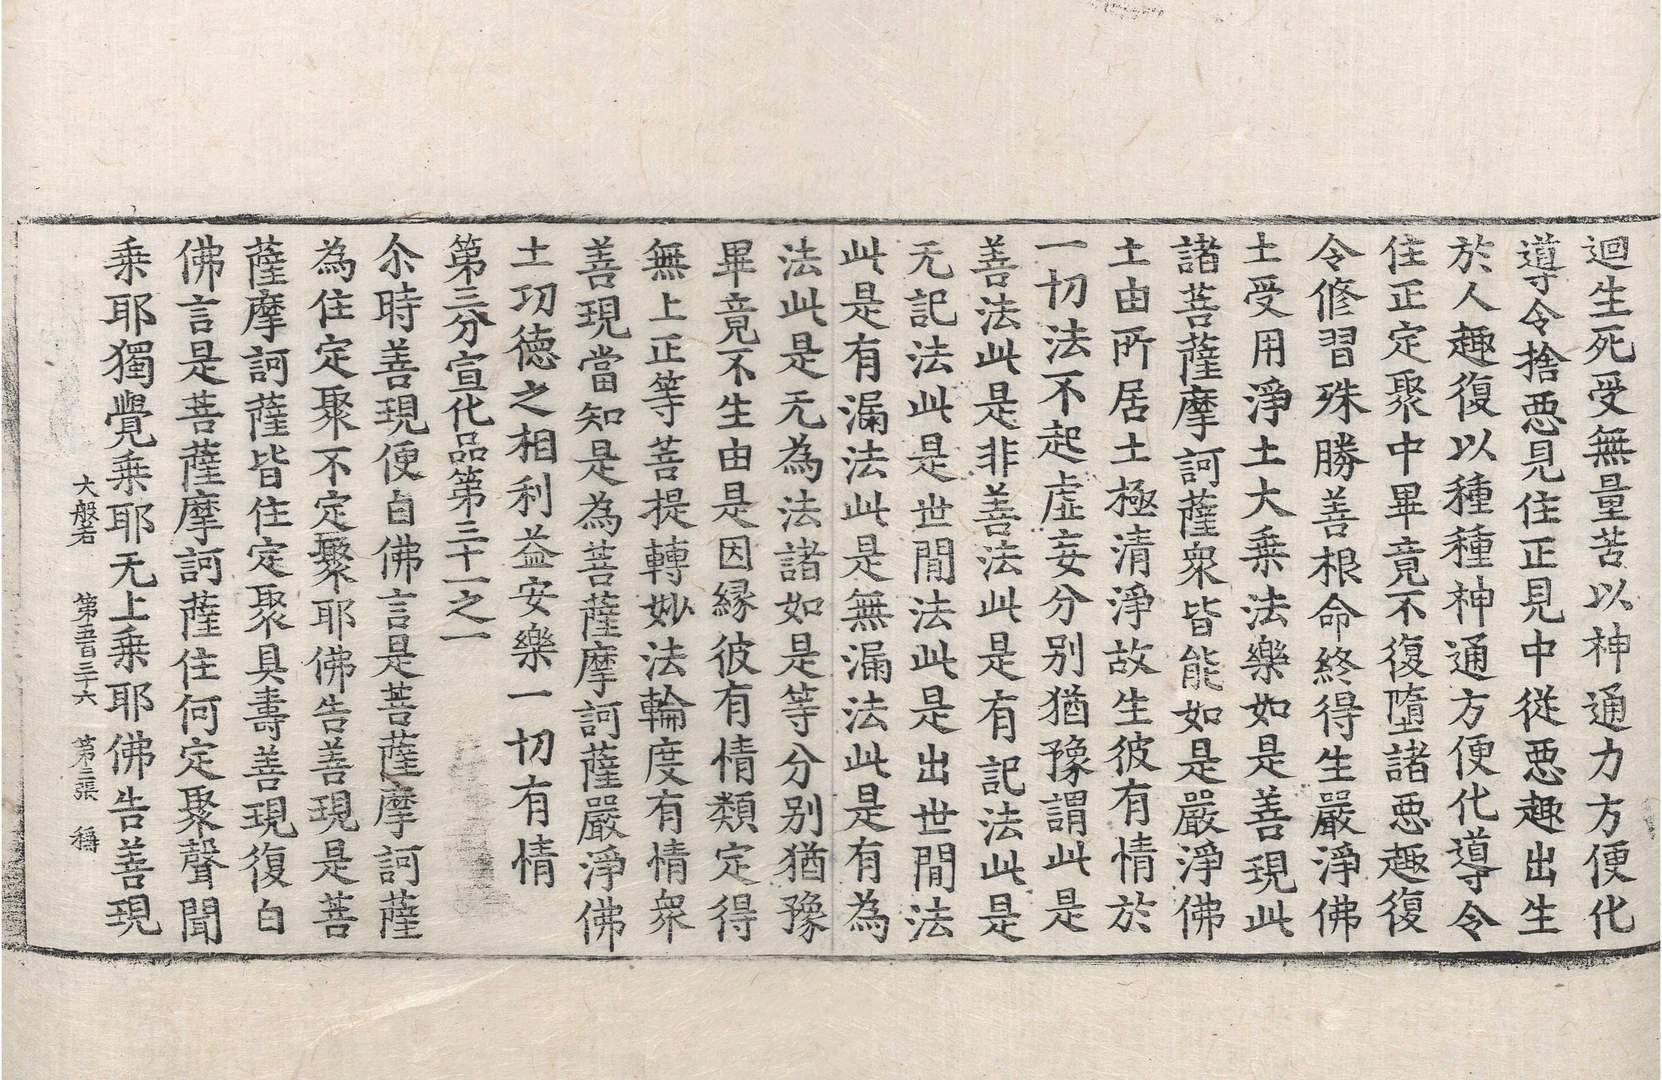 迴生死受無量苦以神通力方便化
導令捨惡見住正見中從惡趣出生
於人趣復以種種神通方便化導令
住正定聚中畢竟不復墮諸惡趣復
令修習殊勝善根命終得生嚴淨佛
土受用淨土大乗法樂如是善現此
諸菩薩摩訶薩衆皆能如是嚴淨佛
土由所居土極清淨故生彼有情於
一切法不起虛妄分別猶豫謂此是
善法此是非善法此是有記法此是
无記法此是世間法此是出世間法
此是有漏法此是無漏法此是有為
法此是无為法諸如是等分別猶豫
畢竟不生由是因緣彼有情類定得
無上正等菩提轉妙法輪度有情衆
善現當知是為菩薩摩訶薩嚴淨佛
土功德之相利益安樂一切有情
第三分宣化品第三十一之一
尒時善現便白佛言是菩薩摩訶薩
為住定聚不定聚耶佛告善現是菩
薩摩訶薩皆住定聚具壽善現復白
佛言是菩薩摩訶薩住何定聚聲聞
乗耶獨覺乗耶无上乗耶佛告善現
大般若 第五百三十六 第三張 稱